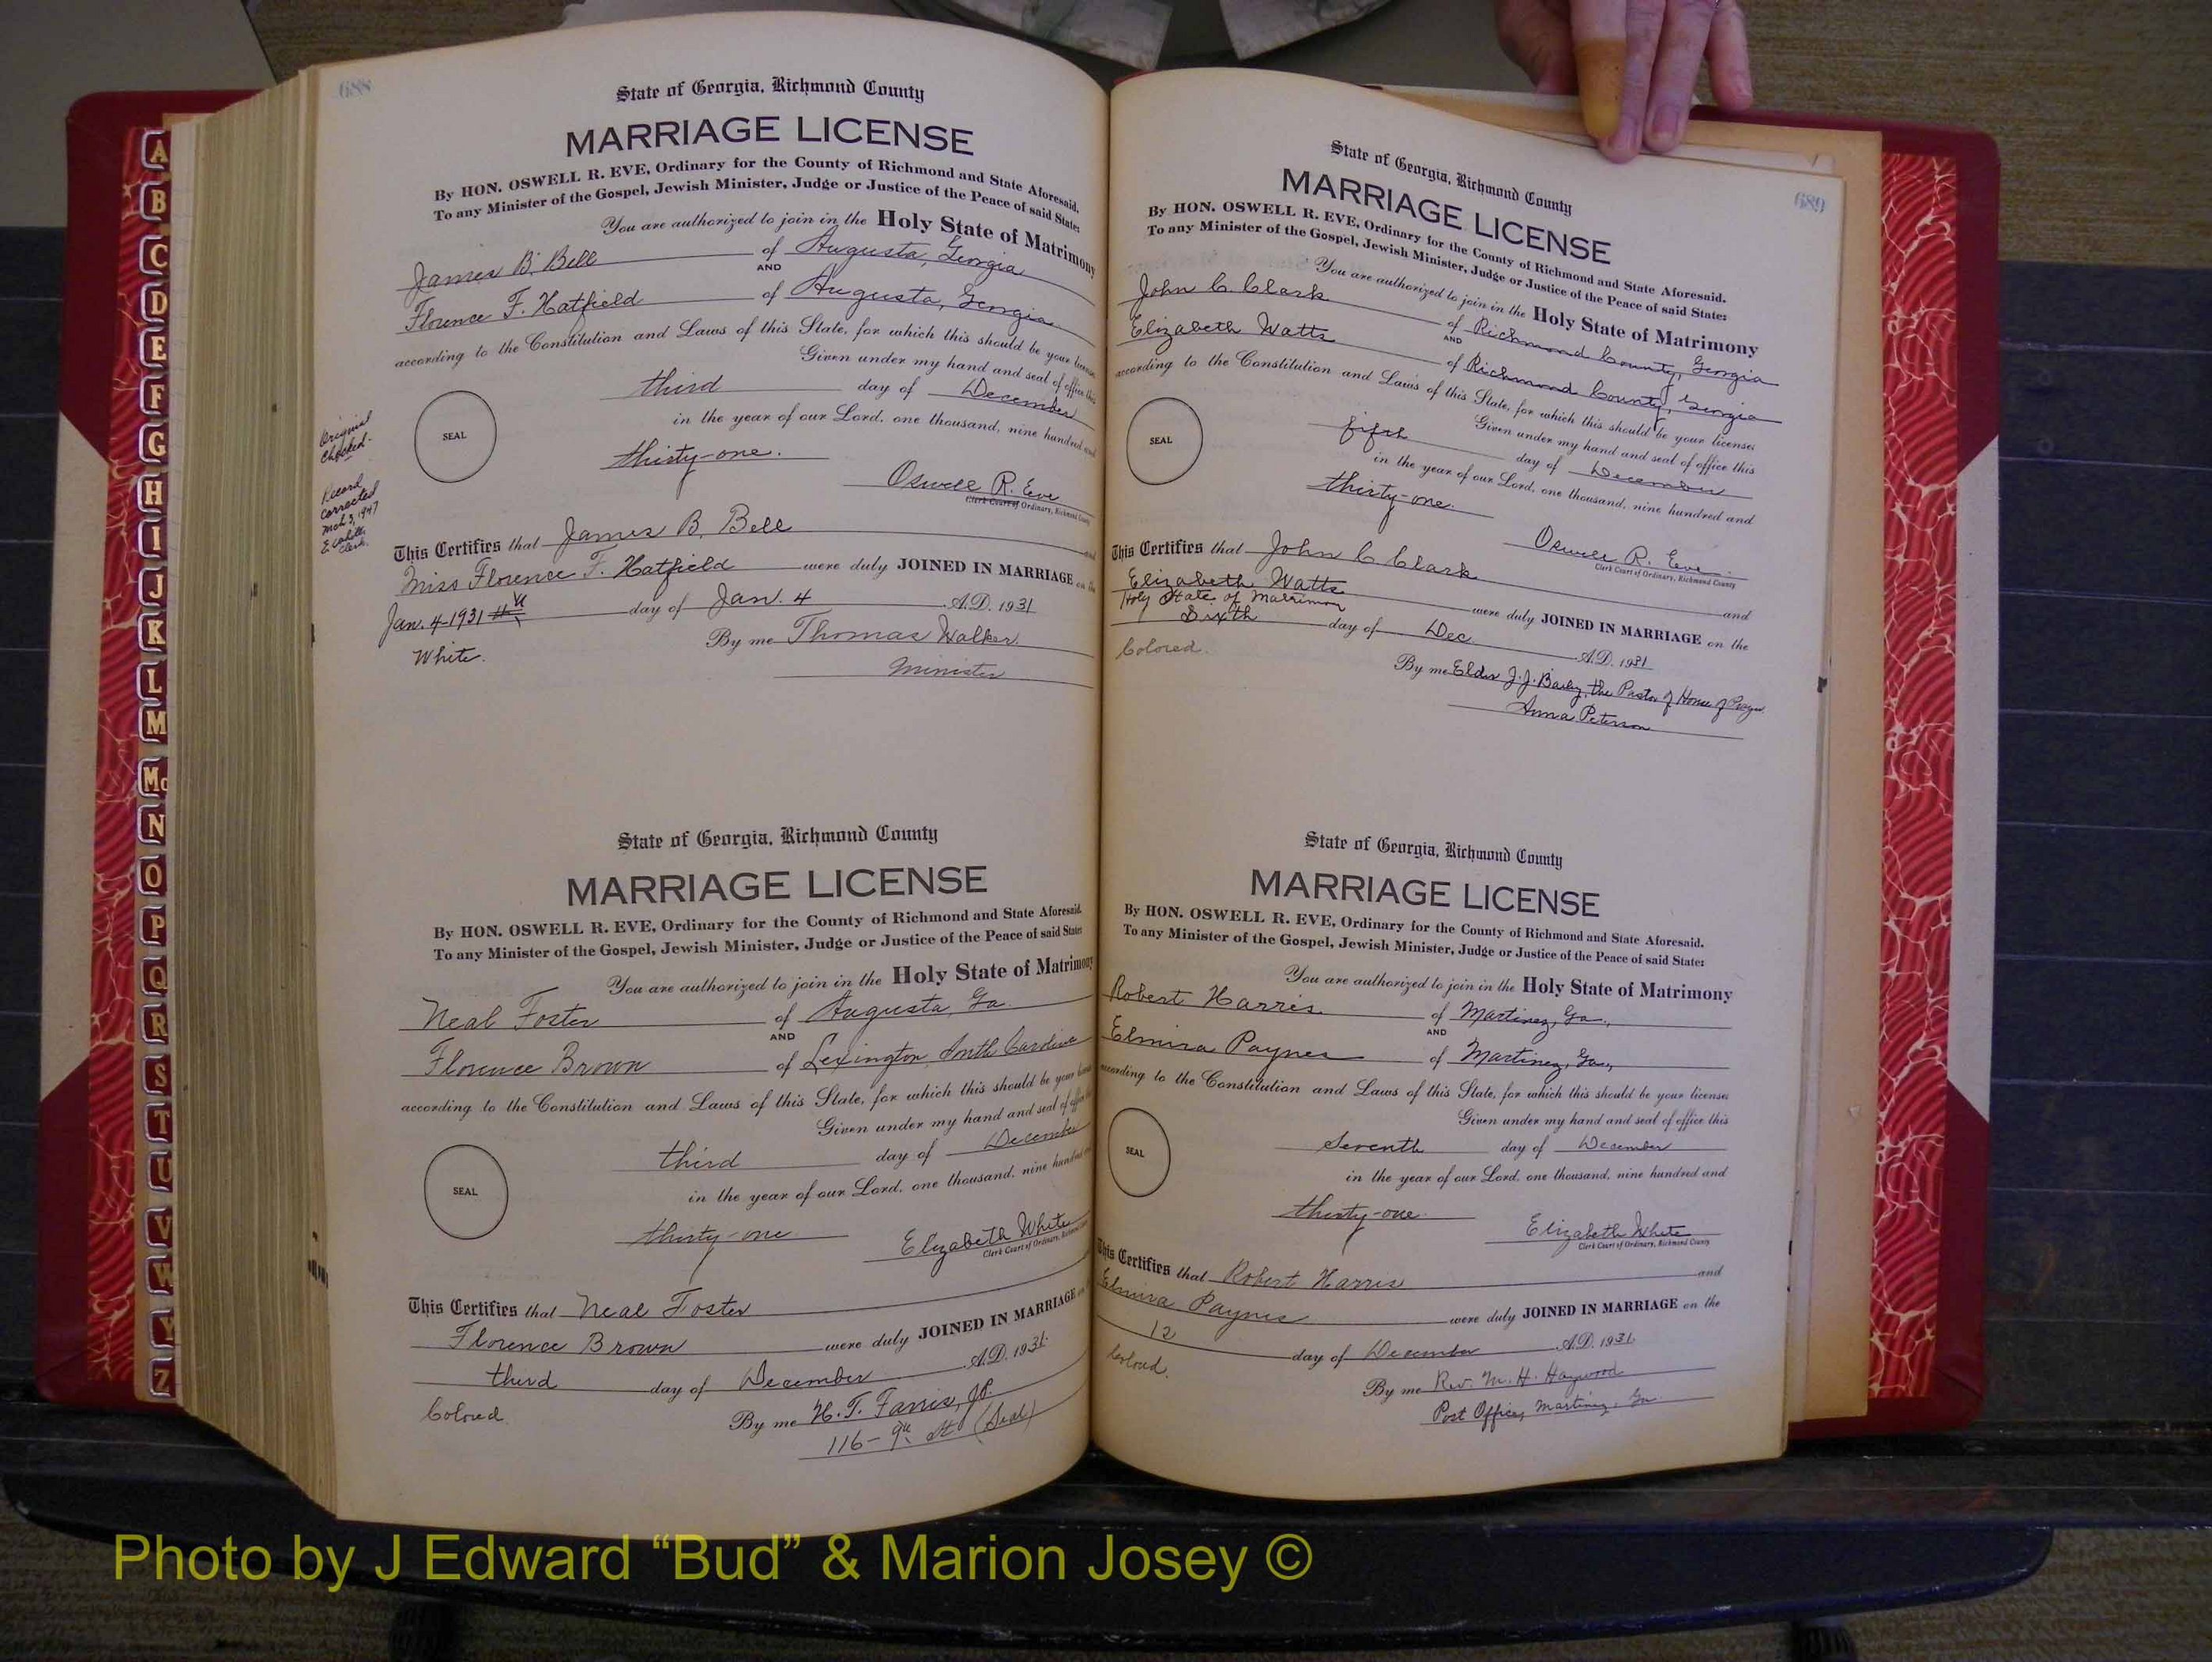 A
B
C
D
E
F
G
H
I
J
K
L
M
Mc
N
O
P
Q
R
S
T
U
V
W
Y
Z
688
State of Georgia, Richmond County
MARRIAGE LICENSE
By HON. OSWELL R. EVE, Ordinary for the County of Richmond and State Aforesaid.
To any Minister of the Gospel, Jewish Minister, Judge or Justice of the Peace of said State:
You are authorized to join in the Holy State of Matrimony
James B. Bell of Augusta, Georgia
AND
Florence F. Hatfield of Augusta, Georgia
according to the Constitution and Laws of this State, for which this should be your license
Given under my hand and seal of office this
third day of December
in the year of our Lord, one thousand, nine hundred and
thirty-one.
SEAL
Original
Checked.
Record
corrected
Mch 3, 1947
Clerk.
Oswell R. Eve
Clerk Court of Ordinary, Richmond County
This Certifies that James B. Bell and
Miss Florence F. Hatfield were duly JOINED IN MARRIAGE on the
Jan. 4-1931 day of Jan. 4 A.D. 1931
White. By me Thomas Walker
Minister
State of Georgia, Richmond County
MARRIAGE LICENSE
By HON. OSWELL R. EVE, Ordinary for the County of Richmond and State Aforesaid.
To any Minister of the Gospel, Jewish Minister, Judge or Justice of the Peace of said State:
You are authorized to join in the Holy State of Matrimony
Neal Foster of Augusta, Ga.
AND
Florence Brown of Lexington, South Carolina
according to the Constitution and Laws of this State, for which this should be your license
Given under my hand and seal of office this
third day of December
in the year of our Lord, one thousand, nine hundred and
thirty-one
SEAL
Elizabeth White
Clerk Court of Ordinary, Richmond County
This Certifies that Neal Foster
Florence Brown were duly JOINED IN MARRIAGE on
third day of December A.D. 1931.
Colored By me H. T. Farris, J.P.
116-9th St (Seal)
689
State of Georgia, Richmond County
MARRIAGE LICENSE
By HON. OSWELL R. EVE, Ordinary for the County of Richmond and State Aforesaid.
To any Minister of the Gospel, Jewish Minister, Judge or Justice of the Peace of said State:
You are authorized to join in the Holy State of Matrimony
John C. Clark of Richmond County, Georgia
AND
Elizabeth Watts of Richmond County, Georgia
according to the Constitution and Laws of this State, for which this should be your license:
Given under my hand and seal of office this
fifth day of December
in the year of our Lord, one thousand, nine hundred and
thirty-one.
SEAL
Oswell R. Eve
Clerk Court of Ordinary, Richmond County
This Certifies that John C Clark and
Elizabeth Watts
Holy State of Matrimony were duly JOINED IN MARRIAGE on the
Sixth day of Dec A.D. 1931
Colored. By me Elder J. J. Baily, the Pastor of House of Prayer
Anna Peterson
State of Georgia, Richmond County
MARRIAGE LICENSE
By HON. OSWELL R. EVE, Ordinary for the County of Richmond and State Aforesaid.
To any Minister of the Gospel, Jewish Minister, Judge or Justice of the Peace of said State:
You are authorized to join in the Holy State of Matrimony
Robert Harris of Martinez, Ga.,
AND
Elmira Paynes of Martinez, Ga.,
according to the Constitution and Laws of this State, for which this should be your license:
Given under my hand and seal of office this
Seventh day of December
in the year of our Lord, one thousand, nine hundred and
thirty-one.
SEAL
Elizabeth White
Clerk Court of Ordinary, Richmond County
This Certifies that Robert Harris and
Elmira Paynes were duly JOINED IN MARRIAGE on the
12 day of December A.D. 1931.
Colored. By me Rev. M. H. Haywood
Post Office, Martinez, Ga.
Photo by J Edward “Bud” & Marion Josey ©